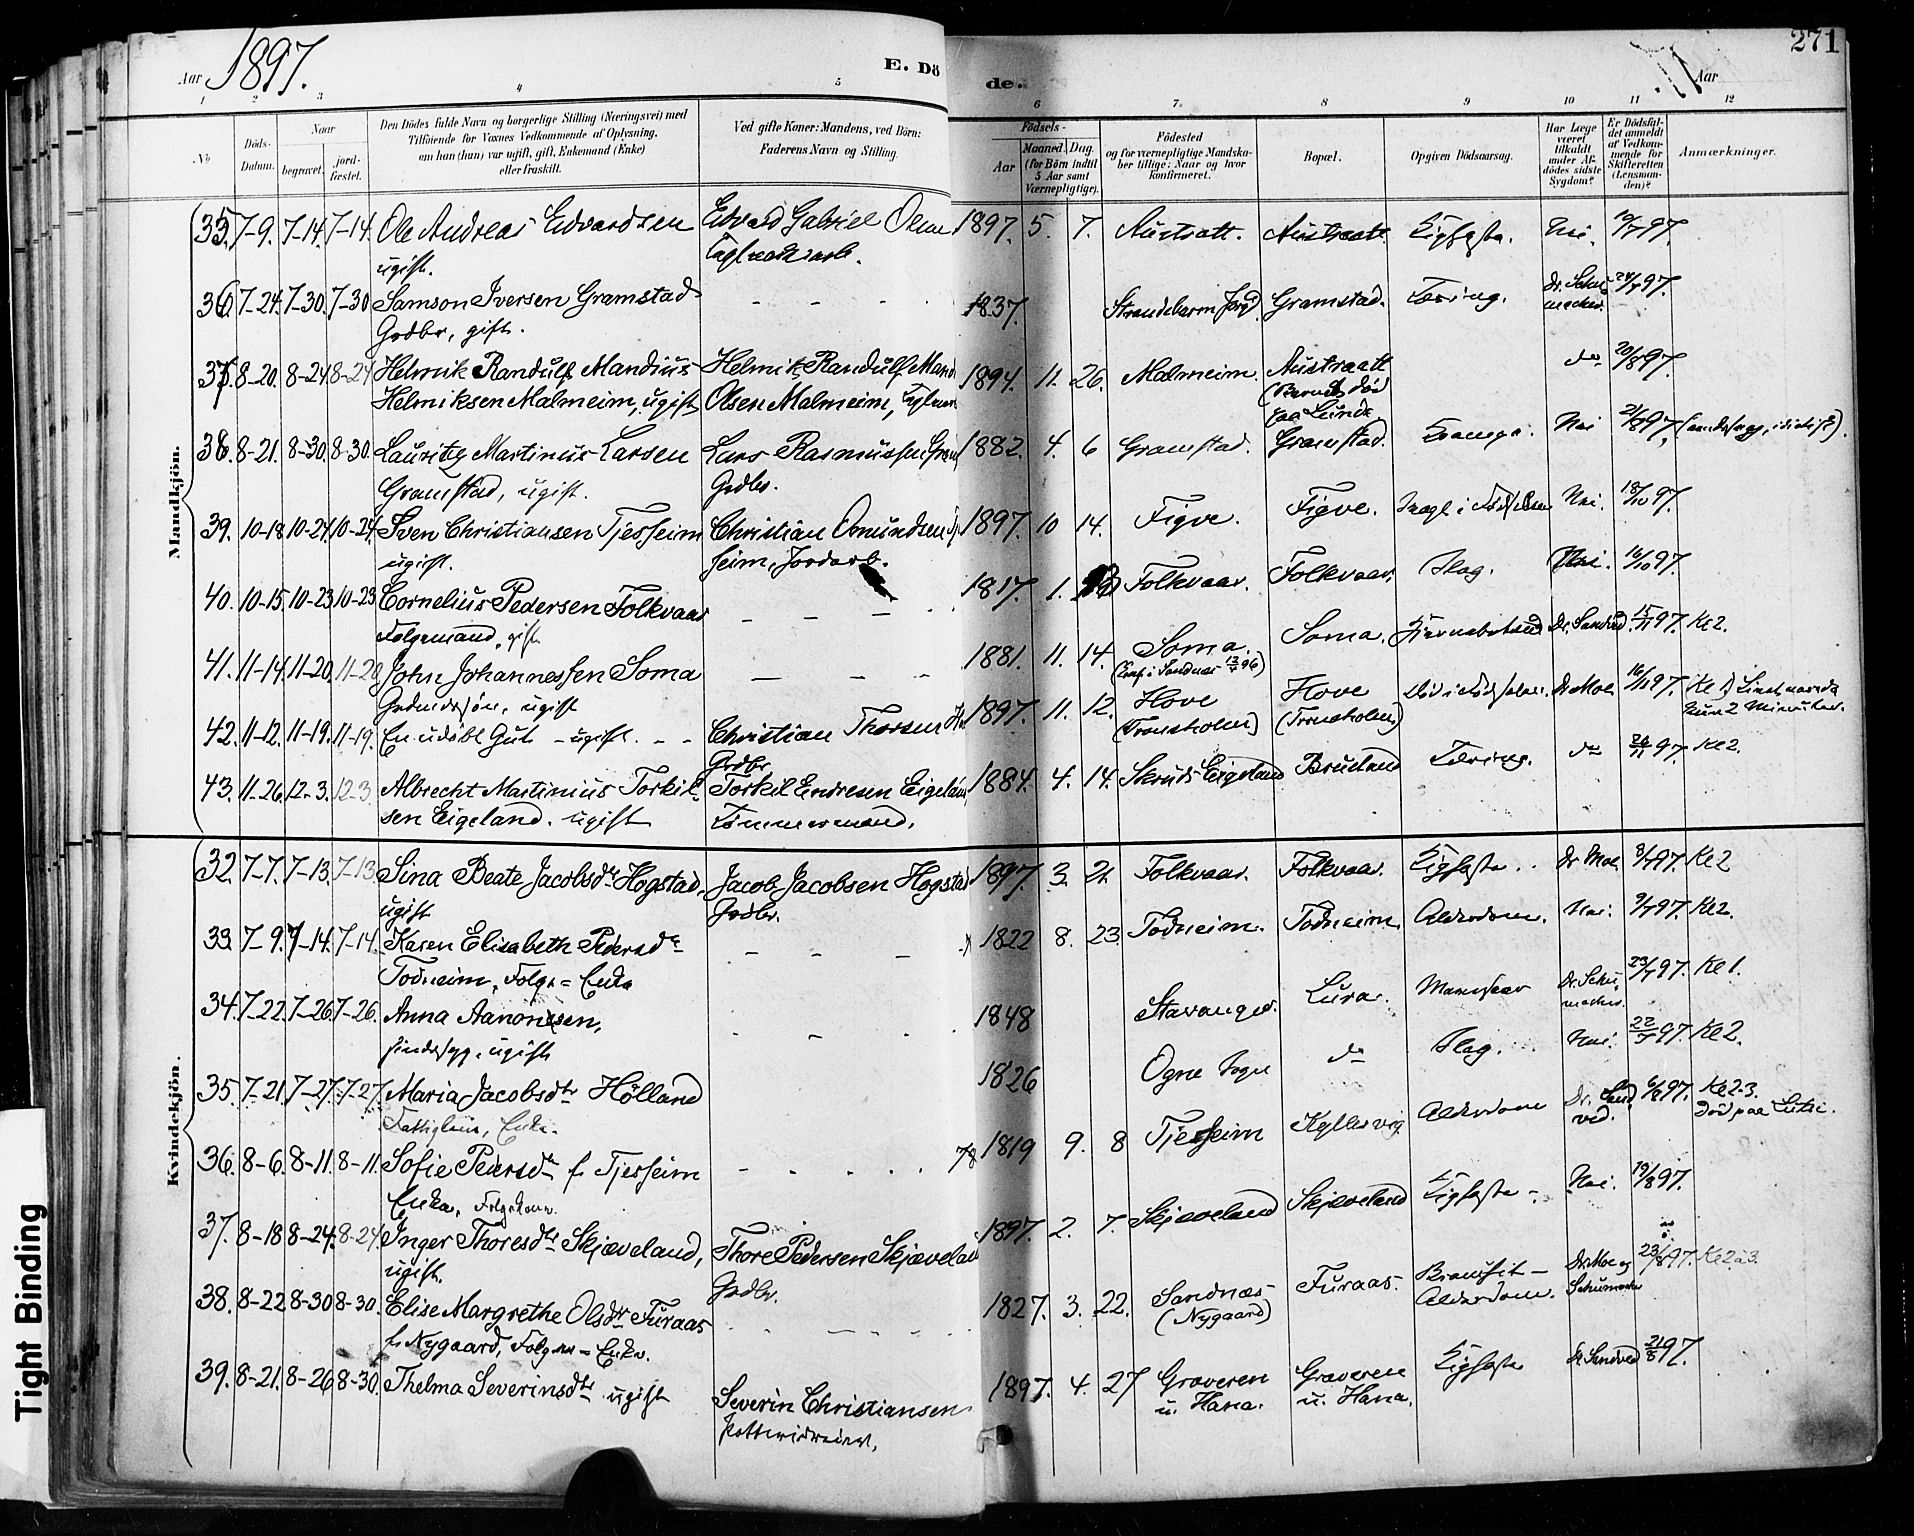 Aar 1897.
E. Döde.
Aar
271
1 2 3 4 5 6 7. 8 9 10 11 12
No
Döds-Datum.
Naar
begravet.
jordfæstet.
Den Dödes fulde Navn og borgerlige Stilling (Næringsvei) med
Tilföiende for Voxnes Vedkommende af Oplysning,
om han (hun) var ugift, gift, Enkemand (Enke)
eller fraskilt.
Ved gifte Koner: Mandens, ved Börn:
Faderens Navn og Stilling.
Födsels-
Aar
Maaned. Dag.
(for Börn indtil
5 Aar samt
Værnepligtige).
Födested
og for værnepligtige Mandskaber tillige: Naar og hvor
konfirmeret.
Bopæl.
Opgiven Dödsaarsag.
Har Læge
været
tilkaldt
under Afdödes sidste
Sygdom?
Er Dödsfaldet anmeldt
af Vedkommende for
Skifteretten
(Lensmanden)?
Anmærkninger.
Mandkjön.
35. 7-9. 7-14. 7-14. Ole Andreas Edvardsen Edvard Gabriel Olsen 1897. 5. 7. Austraatt. Austraatt. Nei. 10/7 97.
ugift.
36. 7-24. 7-30. 7-30 Samson Iversen Gramstad - - - 1837. Strandebarm Gramstad. Tæring. Dr. Schumacher 24/7 97.
Grdbr, gift.
37. 8-20. 8-24. 8-24 Helmik Randulf Mandius Helmik Randulf 1894. 11. 26. Malmeim. Austraatt do 20/8 97.
Helmiksen Malmeim, ugift Olsen Malmeim, (Barnet död
paa Lunde
38. 8-21. 8-30. 8-30. Lauritz Martinus Larsen Lars Rasmussen 1882. 4. 6 Gramstad. Gramstad. Krampe. Nei 21/8 97.
Gramstad, ugift. Grdbr.
39. 10-18. 10-24. 10-24. Sven Christiansen Tjesseim Christian Osmundsen 1897. 10 14. Figve. Figve. Nei. 18/10 97.
ugift. seim, Jordarb.
40. 10-15. 10-23. 10-23 Cornelius Pedersen Folkvaar - - - 1817. 1. Folkvaar. Folkvaar. Slag. Nei. 16/10 97.
Folgemand, gift
41. 11-14. 11-20. 11-20. John Johannessen Soma - - - 1881. 11. 14. Soma. Soma. Dr. Sandved. 15/11 97. Kl 2.
Grdmdssön, ugift
42. 11-12. 11-19. 11-19. En udöbt Gut - ugift. - - Christian Thorsen 1897. 11. 12. Hove Hove Dr. Moe 16/11 97.
Grdbr (Tronsholen) (Tronsholen)
43. 11-26. 12-3. 12-3 Albrecht Martinius Torkil- Torkil Endresen Eigeland 1884. 4. 14. Skruds Eigeland Brueland Tæring. do 26/11 97. Kl 2.
sen Eigeland. ugift Tömmermand.
Kvindekjön.
32. 7-7. 7-13. 7-13 Sina Beate Jacobsdtr Hogstad, Jacob Jacobsen Hogstad 1897. 3. 21. Folkvaar. Folkvaar. Dr Moe 8/7 97. Kl 2
ugift Grdbr.
33. 7-9. 7-14. 7-14. Karen Elisabeth Pedersdtr - - - 1822 8. 23. Todneim. Todneim. Alderdom. Nei. 9/7 97. Kl 2.
Todneim, Folge=Enke
34. 7-22. 7-26. 7-26. Anna Aanonsen, - - 1848 Stavanger. Lura. Dr. Schumacher. 23/7 97. Kl 1.
sindssyg, ugift
35. 7-21. 7-27. 7-27. Maria Jacobsdtr Hölland 1826 Ogne Sogn do Slag. Nei. 22/7 97. Kl 2.
Fattiglem, Enke.
36. 8-6. 8-11. 8-11. Sofie Pedersdtr f. Tjesseim - - - 1819 9. 8 Tjesseim Kyllesvig Alderdom Dr. Sandved. 6/8 97. Kl 2-3.
Enke, Folgekone Död paa Lutsi.
37. 8-18 8-24. 8-24. Inger Thoresdtr Skjæveland, Thore Pedersen Skjæveland 1897. 2. 7. Skjæveland Skjæveland Nei. 19/8 97.
ugift. Grdbr.
38. 8-22 8-30 8-30. Elise Margrethe Olsdtr Furaas - - - 1827. 3. 22. Sandnæs Furaas. Bronkit- Dr. Moe og 23/8 97. Kl 2 à 3.
f. Nygaard, Folge-Enke. (Nygaard) Alderdom. Schumacher
39. 8-21. 8-26 8-30. Thelma Severinsdtr ugift Severin Christiansen 1897. 4. 27 Graveren Graveren Dr. Sandved 21/8 97.
Potteridreier. u. Hana. u. Hana.
Tight Binding